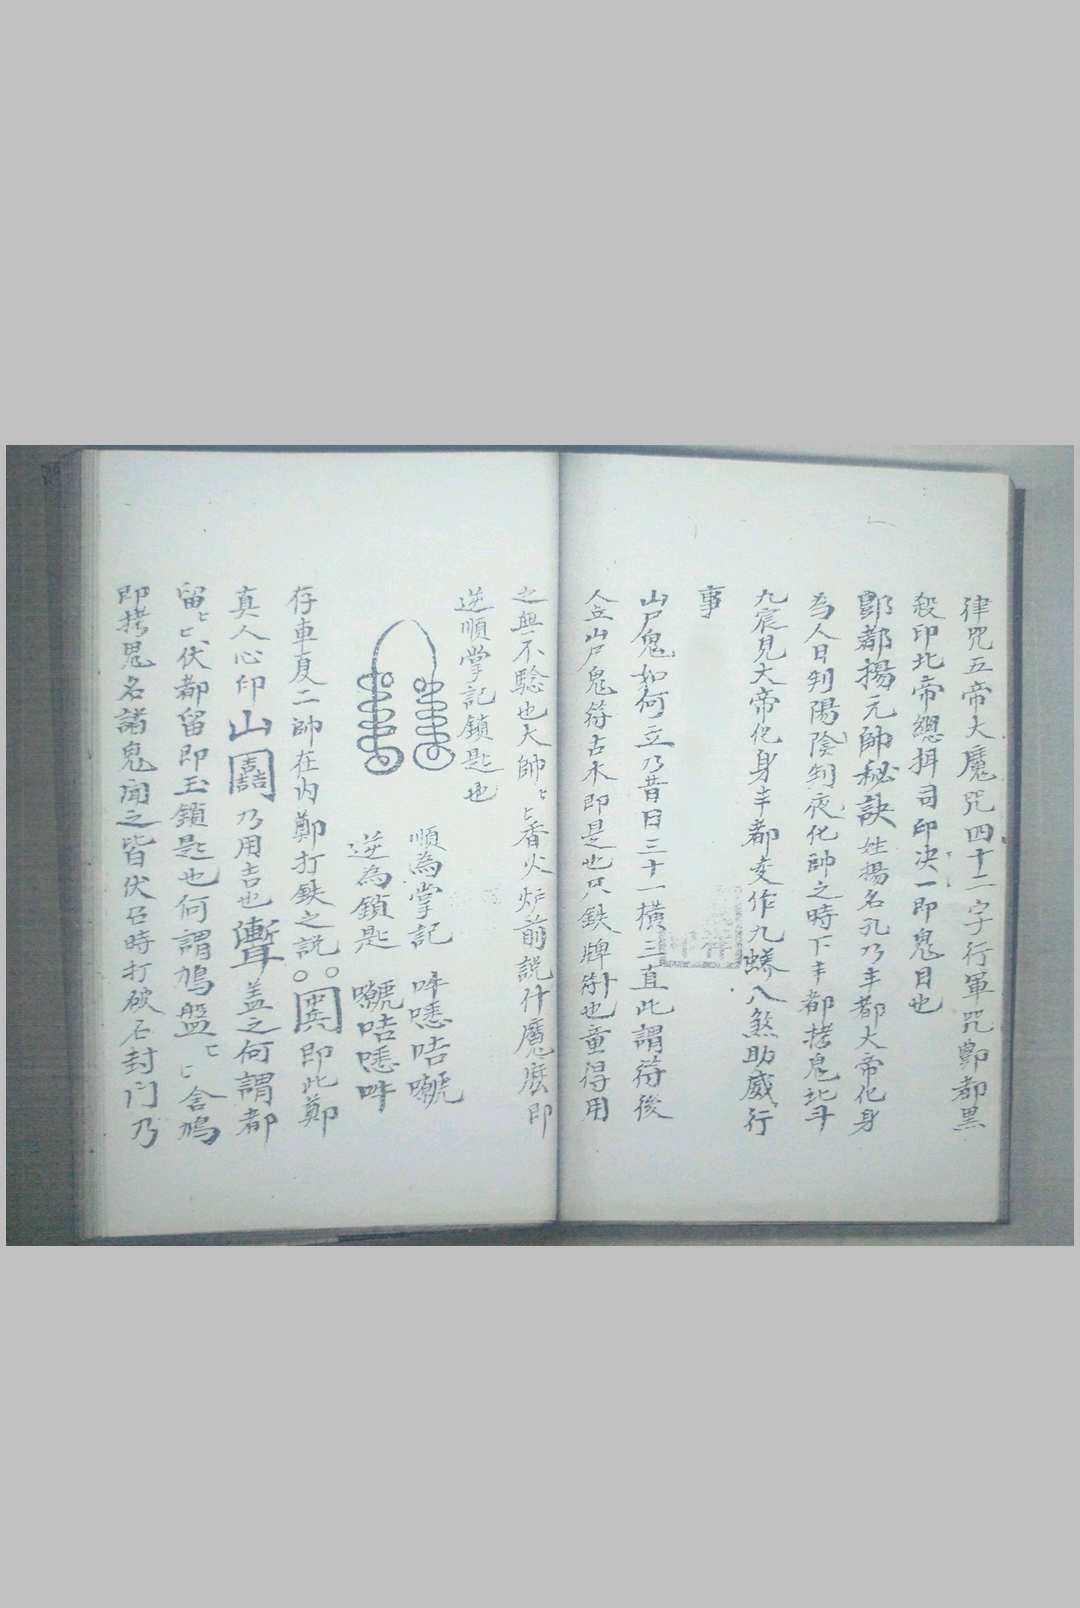 律咒五帝大魔咒四十二字行軍咒酆都黑
殺印北帝總捐司印决一即鬼目也
酆都揚元帥秘訣姓揚名孔乃丰都大帝化身
為人日判陽陰判夜化帥之時下丰都拷鬼北斗
九宸見大帝化身丰都变作九蠎八煞助威行
事
山尸鬼如何立乃昔日三十一橫三直此謂符後
人立山尸鬼符古木即是也只鉄牌符也童得用
之無不騐也大帥香火炉前説什魔麽即
逆順掌記鎖匙也
順為掌記 吽嚁咭囈
逆為鎖匙 咭吽
存車夏二帥在内鄭打鉄之説 即此鄭
真人心印山 乃用吉也 盖之何謂都
留伏都留即玉鎖匙也何謂鳩盤含鳩
即拷鬼名諸鬼聞之皆伏召時打破石封门乃